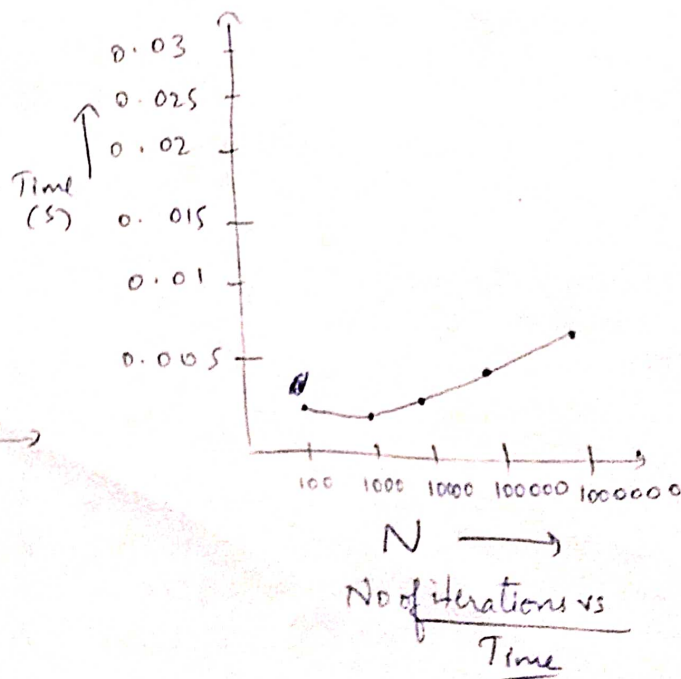 0.03
0.025
0.02
Time
(S)
0.015
0.01
0.005
100 1000 10000 100000 1000000
N
No of iterations vs
Time